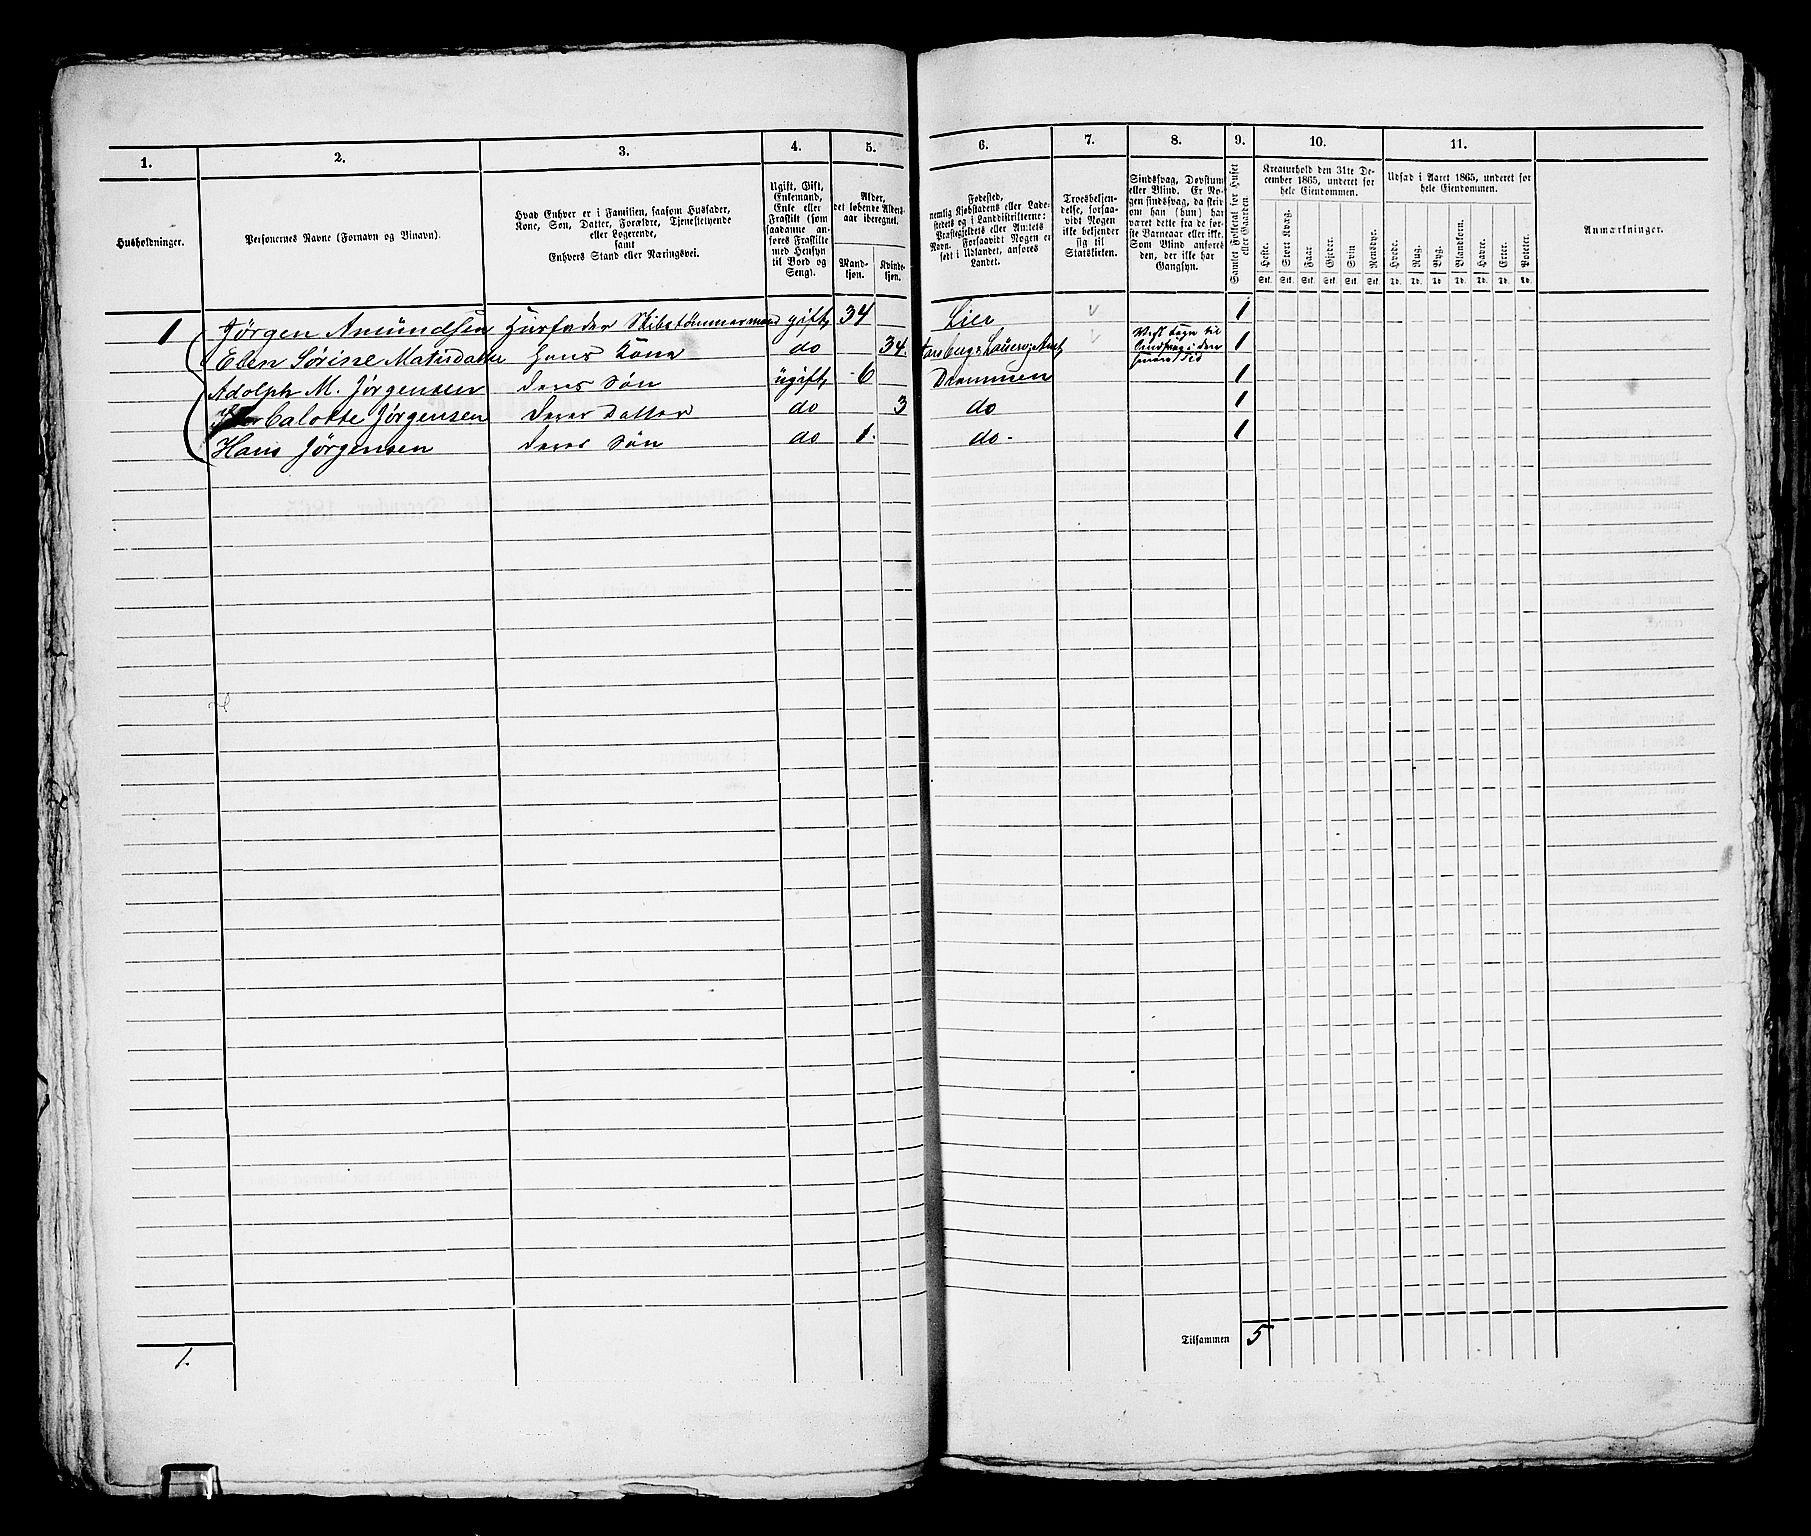 1.
2.
3.
4.
5.
6.
7.
8.
9.
10.
11.
Husholdninger.
Personernes Navne (Fornavn og Binavn).
Hvad Enhver er i Familien, saasom Husfader,
Kone, Søn, Datter, Forældre, Tjenestetyende
eller Logerende,
samt
Enhvers Stand eller Næringsvei.
Ugift, Gift,
Enkemand,
Enke eller
Fraskilt (som
saadanne an-
føres Fraskilte
med Hensyn
til Bord og
Seng).
Alder,
det løbende Alders-
aar iberegnet.
Mand-
kjøn.
Kvinde-
kjøn.
Fødested,
nemlig Kjøbstadens eller Lade-
stedets og i Landdistrikterne:
Præstegjeldets eller Amtets
Navn. Forsaavidt Nogen er
født i Udlandet, anføres
Landet.
Troesbekjen-
delse, forsaa-
vidt Nogen
ikke bekjender
sig til
Statskirken.
Sindssvag, Døvstum
eller Blind. Er No-
gen sindssvag, da skriv
om han (hun) har
været dette fra de før-
ste Barneaar eller ikke.
Som Blind anføres
den, der ikke har
Gangsyn.
Samlet Folketal for Huset
eller Gaarden.
Kreaturhold den 31te De-
cember 1865, underet for
hele Eiendommen.
Heste.
Stort Kvæg.
Faar
Gjeder.
Svin
Rensdyr.
Stk. Stk. Stk. Stk. Stk. Stk.
Udsæd i Aaret 1865, underet for
hele Eiendommen.
Hvede.
Rug.
Byg.
Blandkorn.
Havre.
Erter.
Poteter.
Td. Td. Td. Td. Td. Td. Td.
Anmærkninger.
1 Jörgen Amundsen Husfader Skibstömmermand gift 34 Lier 1
Elen Sörine Matisdatter Hans Kone do 34. Amt 1
Adolph M. Jörgensen Deres Sön ugift 6 Drammen 1
Calotte Jörgensen Deres Datter do 3 do 1
Hans Jörgensen Deres Sön do 1. do 1
1.
Tilsammen 5